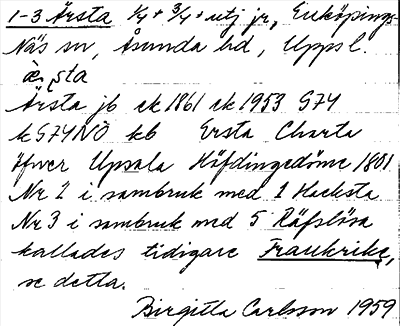 1-3 Årsta 1/4 + 3/4 + utj jr, Enköpings-
Näs sn, Åsunda hd, Upps l.
æ̀ṣta
Årsta jb ek 1861 ek 1953 G7Y
k G7YNÖ kb Ersta Charta
öfwer Upsala Höfdingedöme 1801
Nr 2 i sambruk med 1 Hacksta
Nr 3 i sambruk med 5 Räfslösa
kallades tidigare Frankrike,
se detta.
Birgitta Carlsson 1959